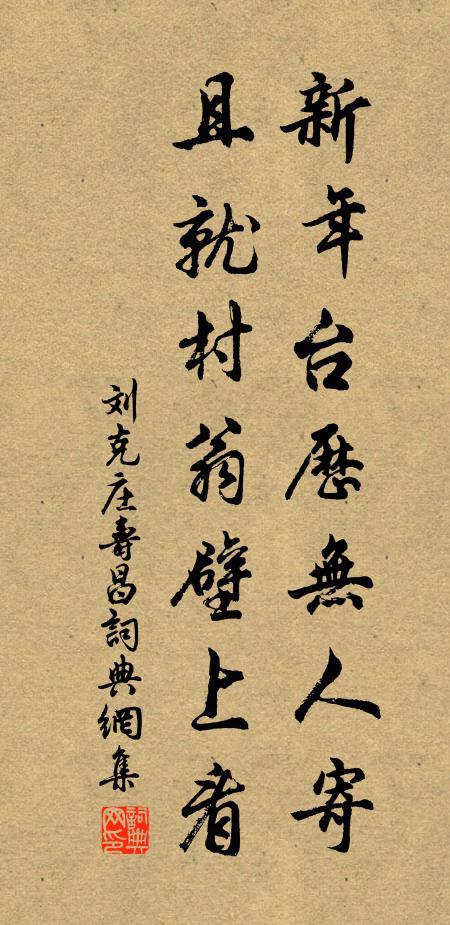 新年台歷無人寄
且就村翁壁上看
刘克庄壽昌詞典網集
詞典网印